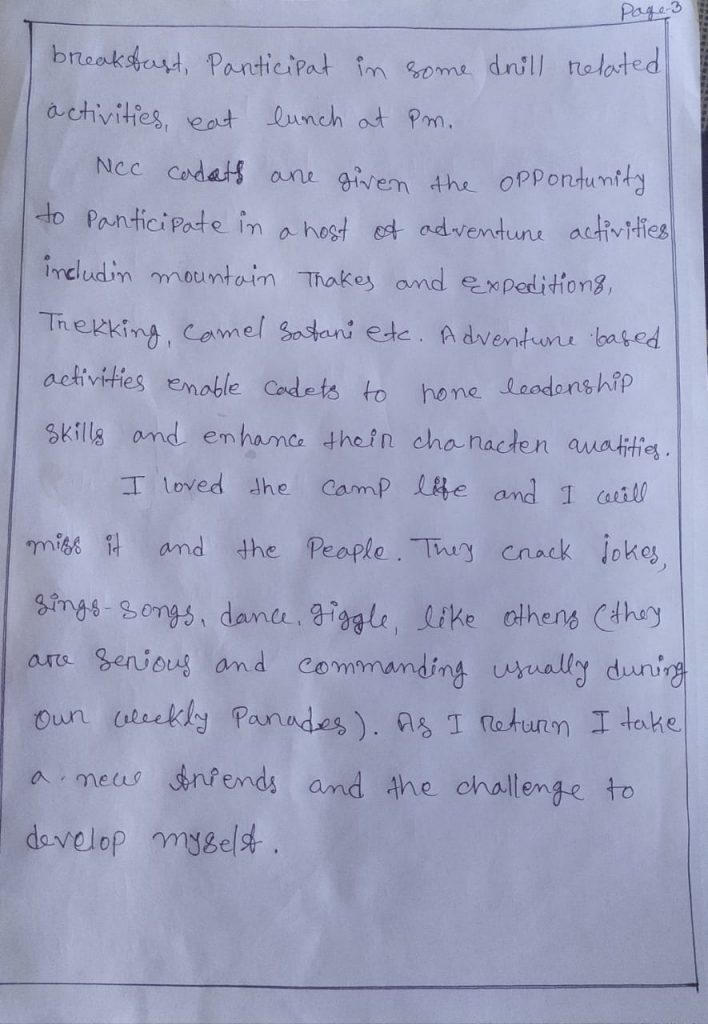 Page-3
breakfast, Participat in some drill related
activities, eat lunch at Pm.
NCC cadets are given the opportunity
to Participate in a host of adventure activities
includin mountain Thakes and expeditions,
Trekking, Camel Safari etc. Adventure based
activities enable cadets to hone leadership
skills and enhance their character quatities.
I loved the camp life and I will
miss it and the Peaple. They crack jokes,
sings-songs, dance, giggle, like others (they
are serious and commanding usually during
our weekly Parades). As I return I take
a new friends and the challenge to
develop myself.